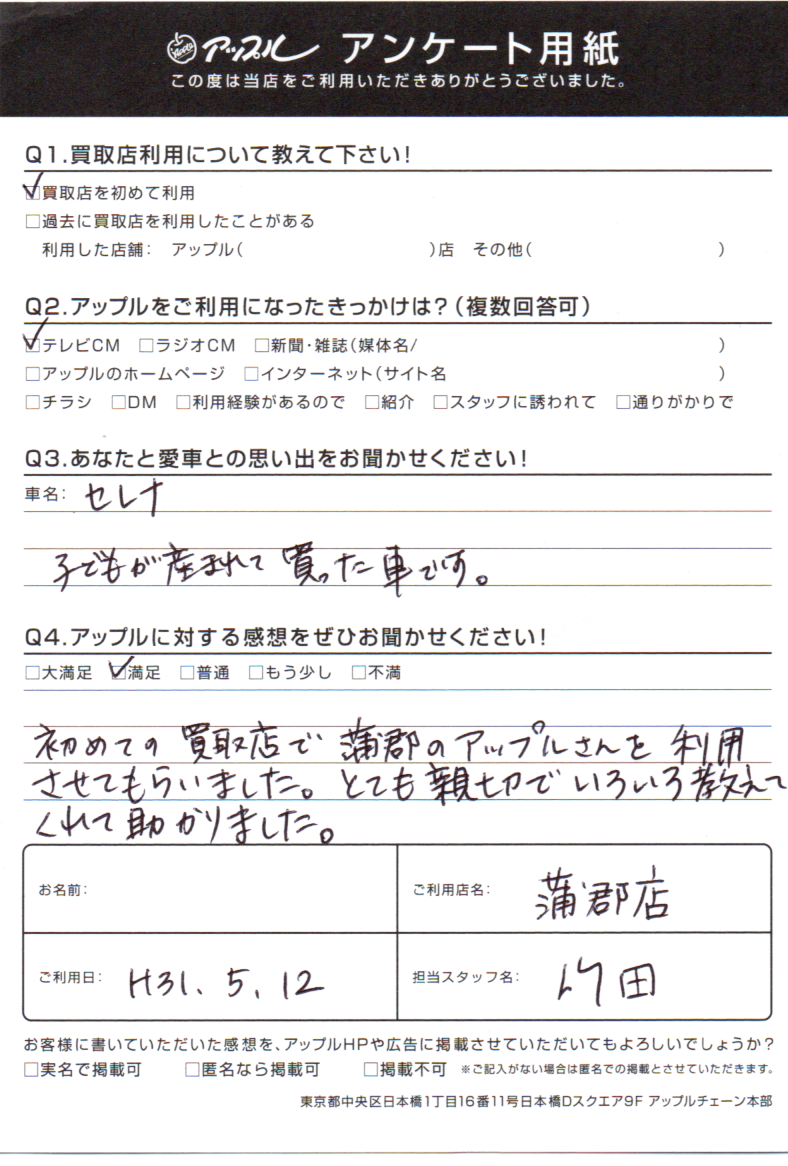 アップル アンケート用紙
この度は当店をご利用いただきありがとうございました。
Q1.買取店利用について教えて下さい!
☑買取店を初めて利用
□過去に買取店を利用したことがある
利用した店舗: アップル( )店 その他( )
Q2.アップルをご利用になったきっかけは?(複数回答可)
☑テレビCM □ラジオCM □新聞・雑誌(媒体名/ )
□アップルのホームページ □インターネット(サイト名 )
□チラシ □DM □利用経験があるので □紹介 □スタッフに誘われて □通りがかりで
Q3.あなたと愛車との思い出をお聞かせください!
車名: セレナ
子どもが産まれて買った車です。
Q4.アップルに対する感想をぜひお聞かせください!
□大満足 ☑満足 □普通 □もう少し □不満
初めての買取店で蒲郡のアップルさんを利用
させてもらいました。とても親切でいろいろ教えて
くれて助かりました。
お名前: ご利用店名: 蒲郡店
ご利用日: H31.5.12 担当スタッフ名: 竹田
お客様に書いていただいた感想を、アップルHPや広告に掲載させていただいてもよろしいでしょうか?
□実名で掲載可 □匿名なら掲載可 □掲載不可 ※ご記入がない場合は匿名での掲載とさせていただきます。
東京都中央区日本橋1丁目16番11号日本橋Dスクエア9F アップルチェーン本部